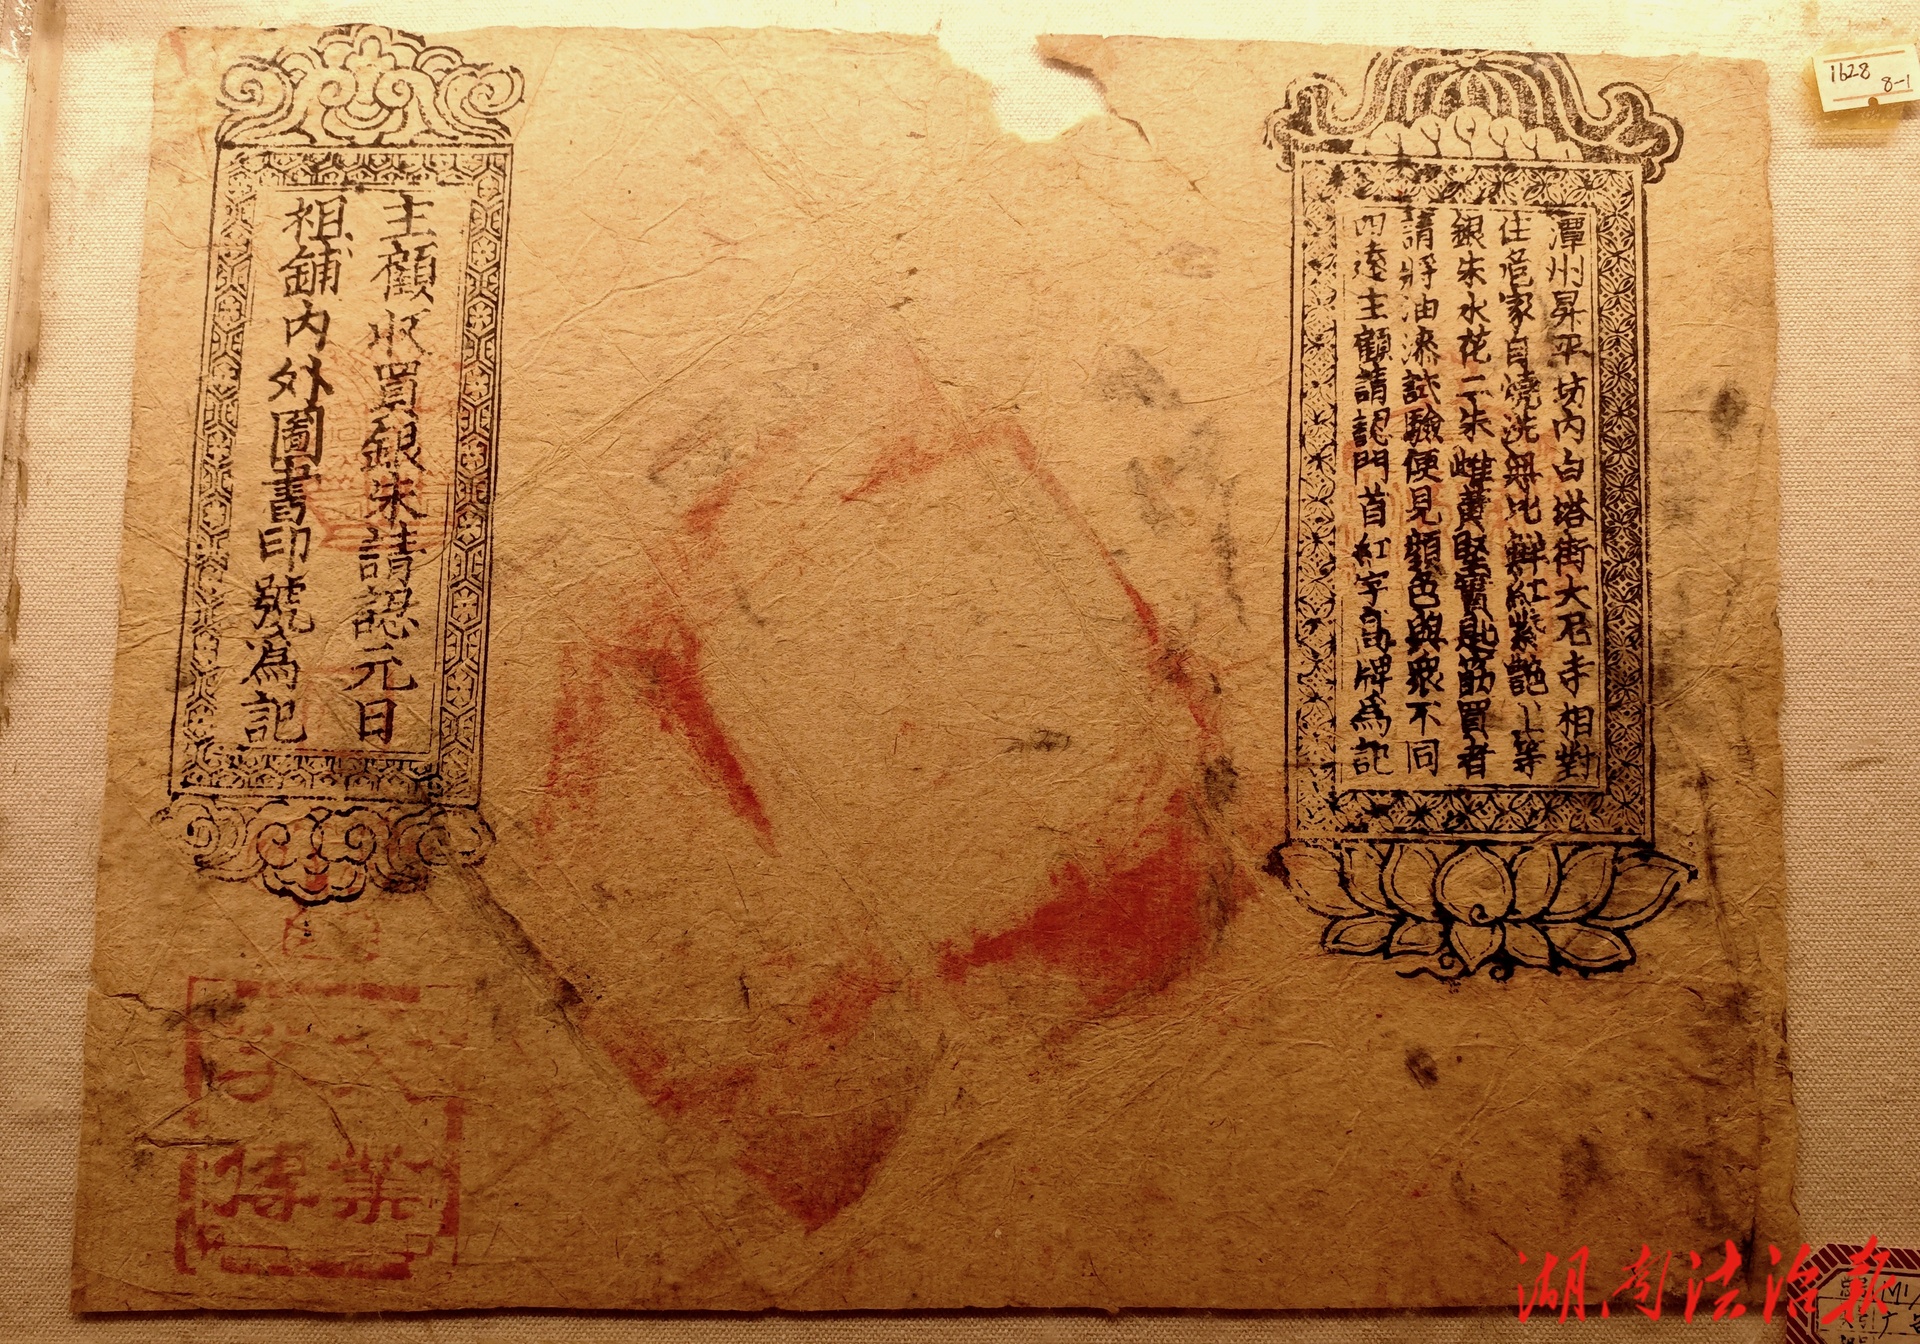 潭州昇平坊内白塔街大尼寺相對
住危家自燒洗無比鮮紅紫艶上等
銀朱水花二朱雌黄堅實匙筯買者
請將油漆試驗便見顔色與衆不同
四遠主顧請認門首紅字高牌爲記
主顧收買銀朱請認元日
祖鋪内外圖書印號爲記
1628
8-1
湖南法治报